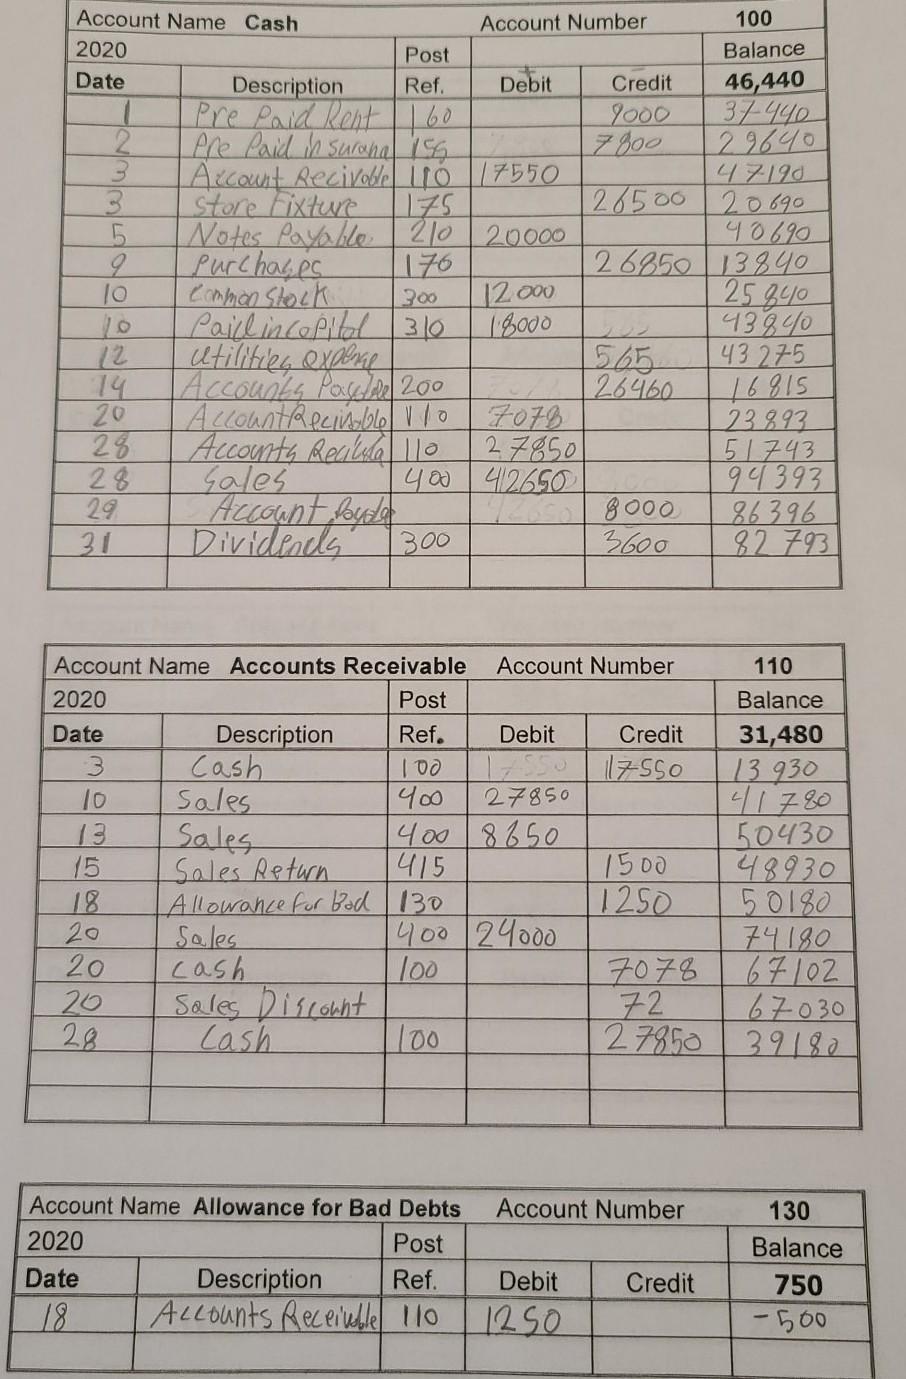 Account Name Cash Account Number 100
2020 Post Balance
Date Description Ref. Debit Credit 46,440
1 Pre Paid Rent 160 9000 37440
2 Pre Paid insuran 155 7800 29640
3 Account Recivable 110 17550 47190
3 Store Fixture 175 26500 20690
5 Notes Payable 210 20000 40690
9 Purchases 176 26850 13840
10 Common Stock 300 12000 25840
10 Paid in capitol 310 18000 43840
12 utilities expense 565 43275
14 Accounts Payable 200 26460 16815
20 Account Recivable 110 7078 23893
28 Accounts 110 27850 51743
28 Sales 400 42650 94393
29 Account 8000 86396
31 Dividends 300 3600 82793
Account Name Accounts Receivable Account Number 110
2020 Post Balance
Date Description Ref. Debit Credit 31,480
3 Cash 100 17550 17550 13930
10 Sales 400 27850 41780
13 Sales 400 8650 50430
15 Sales Return 415 1500 48930
18 Allowance for Bad 130 1250 50180
20 Sales 400 24000 74180
20 cash 100 7078 67102
20 Sales Discount 72 67030
28 Cash 100 27850 39180
Account Name Allowance for Bad Debts Account Number 130
2020 Post Balance
Date Description Ref. Debit Credit 750
18 Accounts Receivable 110 1250 -500